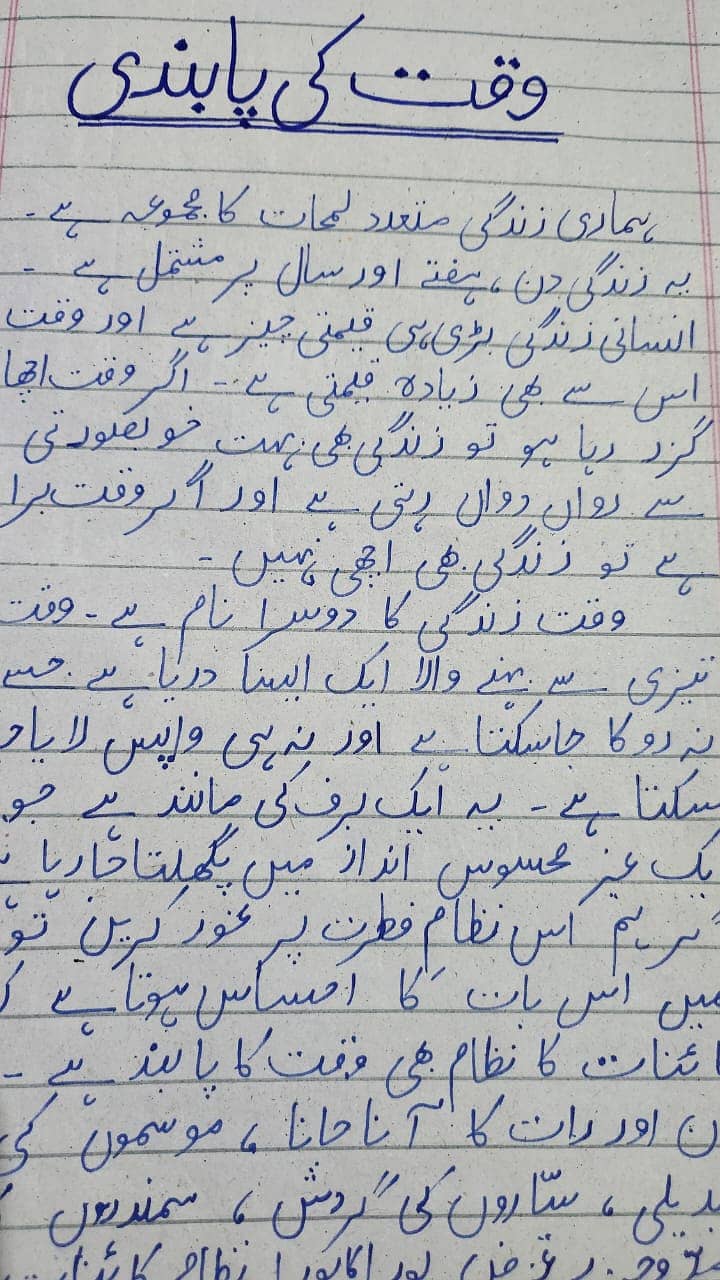 وقت کی پابندی
ہماری زندگی متعدد لمحات کا مجموعہ ہے۔
یہ زندگی دن، ہفتے اور سال پر مشتمل ہے۔
انسانی زندگی بڑی ہی قیمتی چیز ہے اور وقت
اس سے بھی زیادہ قیمتی ہے۔ اگر وقت اچھا
گزر رہا ہو تو زندگی بھی بہت خوبصورتی
سے رواں دواں رہتی ہے اور اگر وقت برا
ہے تو زندگی بھی اچھی نہیں۔
وقت زندگی کا دوسرا نام ہے۔ وقت
تیزی سے بہنے والا ایک ایسا دریا ہے جسے
نہ روکا جاسکتا ہے اور نہ ہی واپس لایا جا
سکتا ہے۔ یہ ایک برف کی مانند ہے جو
یک غیر محسوس انداز میں پگھلتا جا رہا ہے
گر ہم اس نظام فطرت پر غور کریں تو
میں اس بات کا احساس ہوتا ہے ک
ائنات کا نظام بھی وقت کا پابند ہے۔
ن اور رات کا آنا جانا، موسموں کی
بدیلی، ستاروں کی گردش، سمندروں
غرض پورا کا پورا نظام کائنات